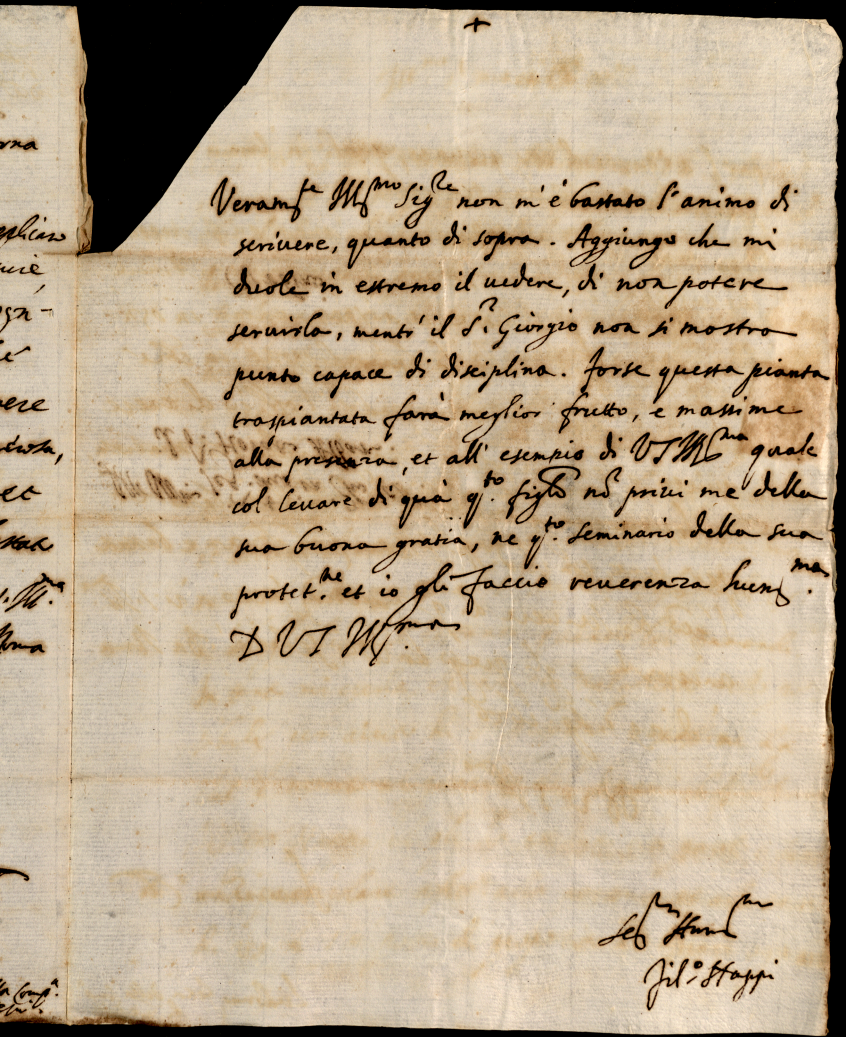 +
Veram.te Ill.mo Sig.re non m'é bastato l'animo di
scriuere, quanto di sopra. Aggiungo che mi
duole in estremo il uedere, di non potere
seruirla, mentr' il S.r Giorgio non si mostra
punto capace di disciplina. forse questa pianta
traspiantata farà meglior frutto, e massime
alla presenza, et all' esempio di VS Ill.ma quale
col leuare di quà q.to figlio nõ priui me della
sua buona gratia, ne q.to seminario della sua
protet.ne et io gli faccio reuerenza hum.ma.
D VS Ill.ma
Fil.o Stoppi